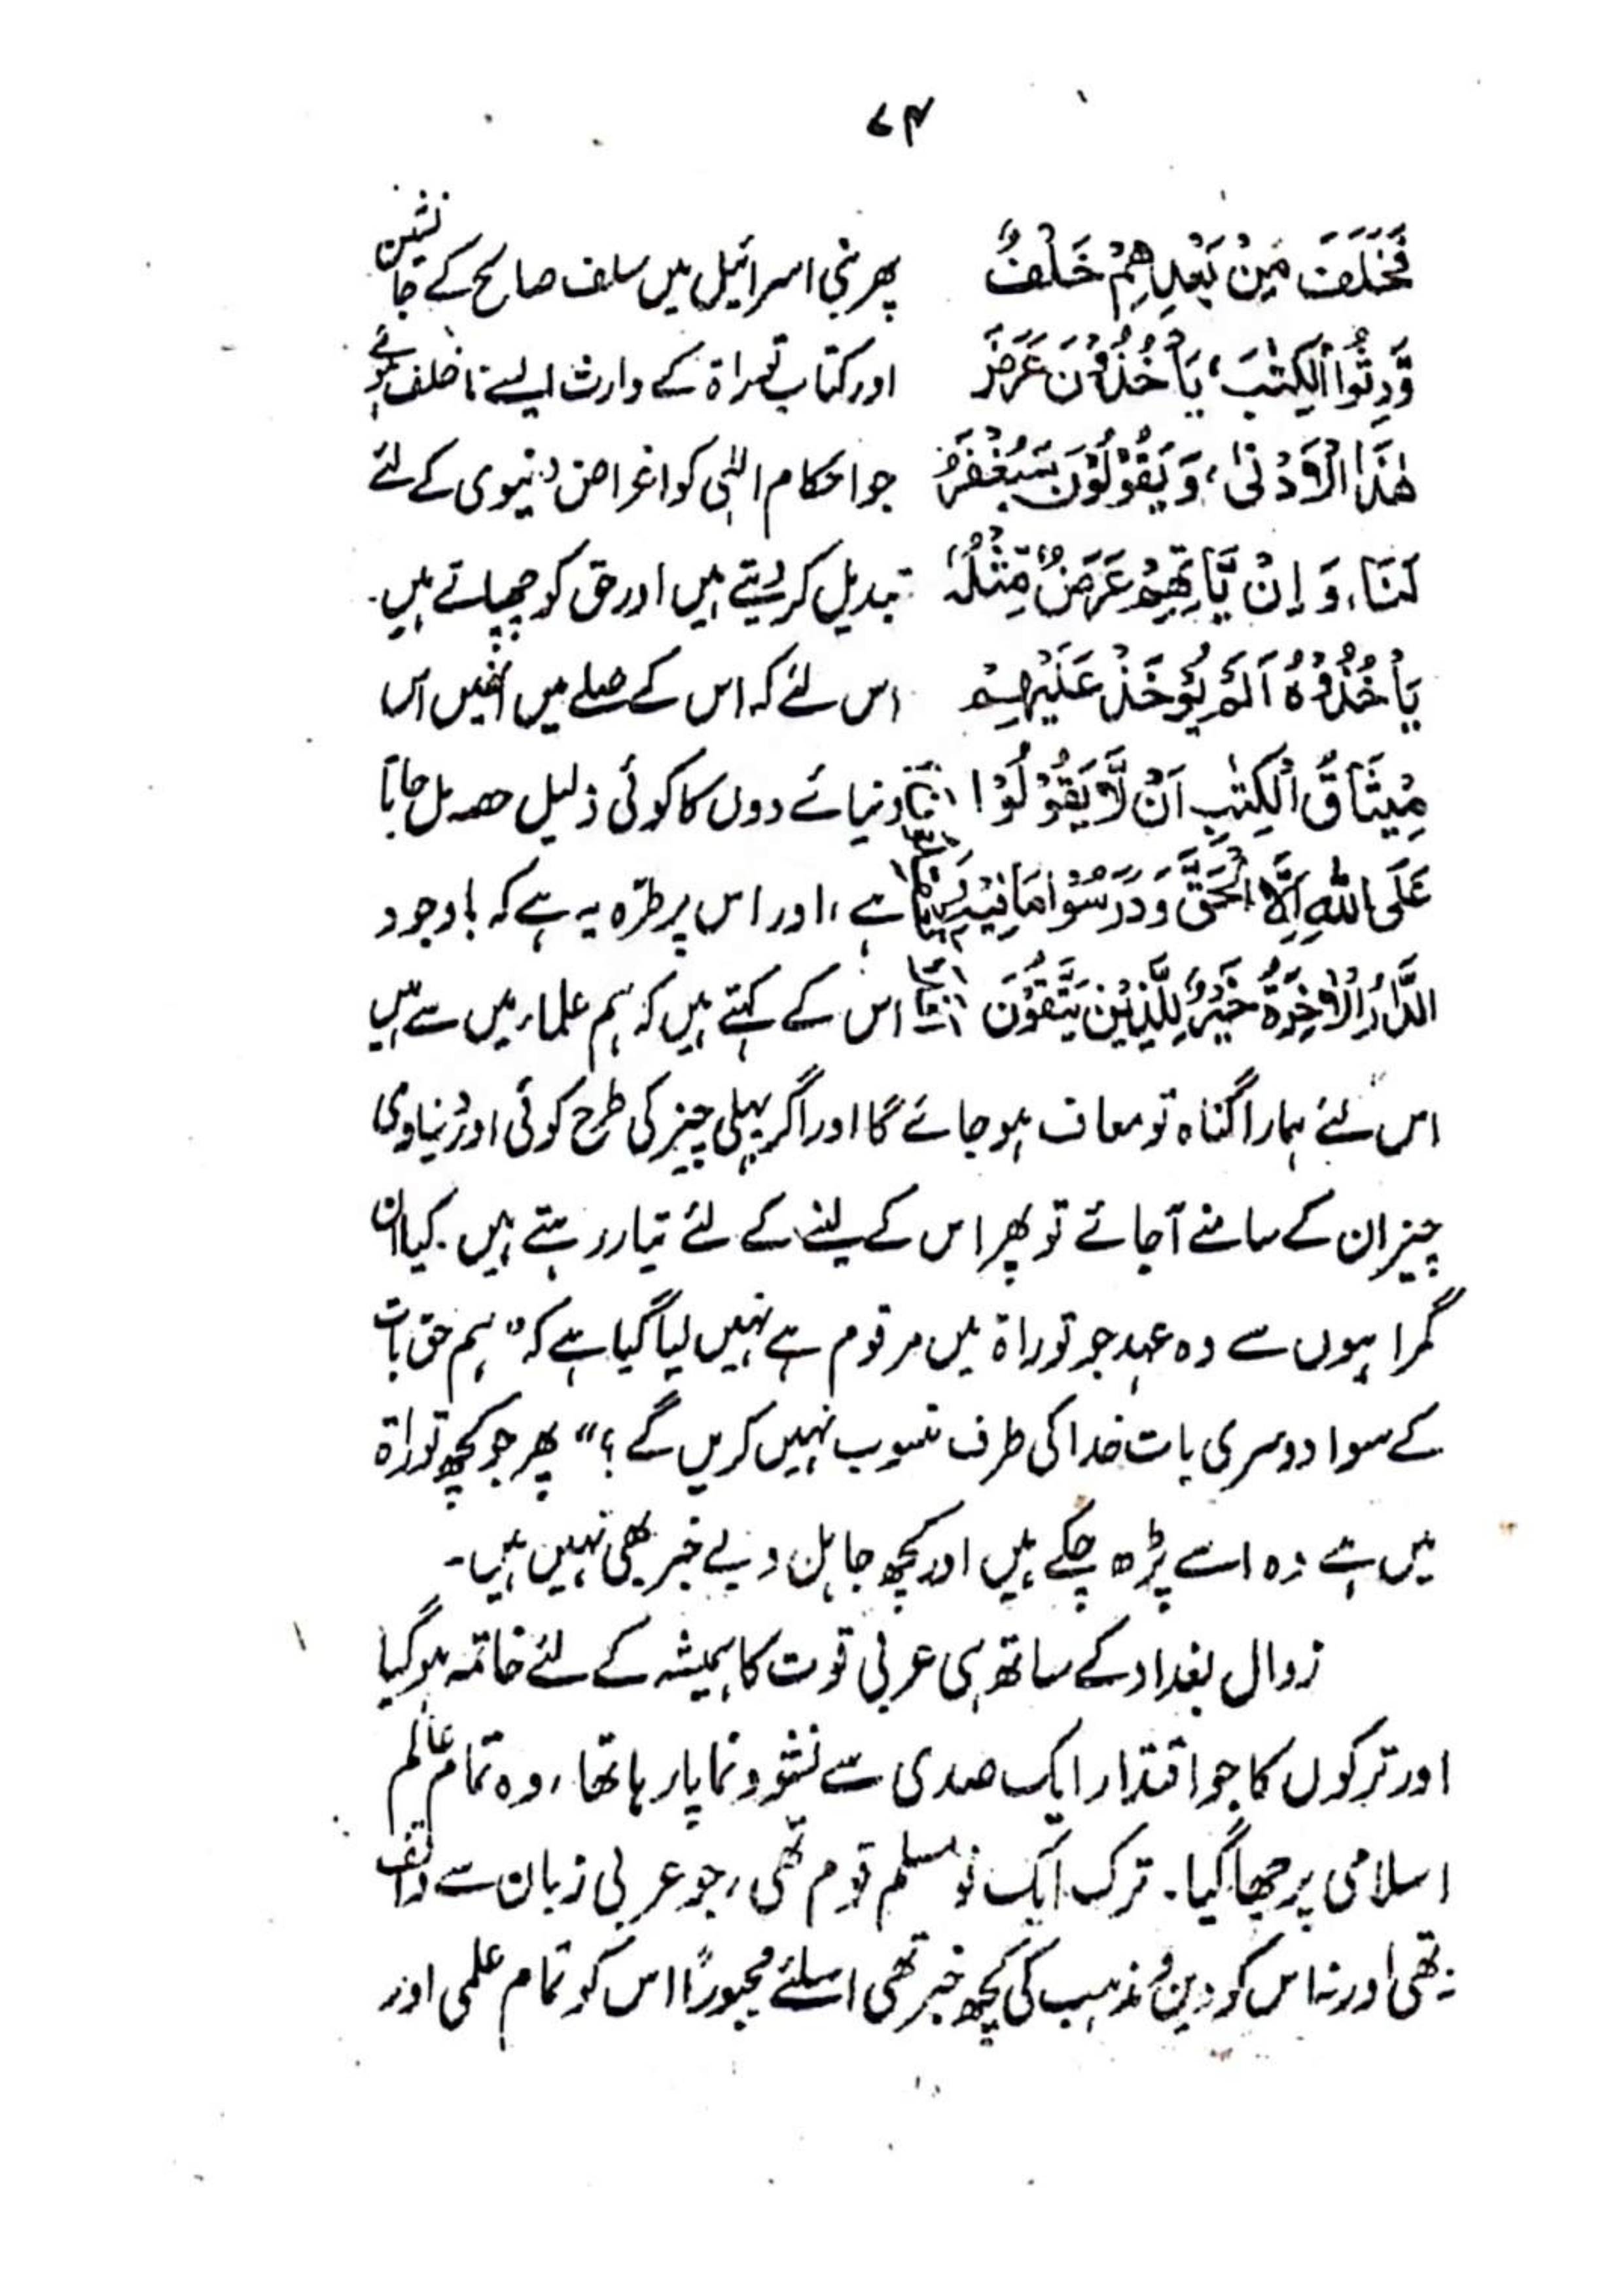 ۷۴
فَخَلَفَ مِنْ بَعْدِهِمْ خَلْفٌ
وَّرِثُوا الْكِتٰبَ، يَاْخُذُوْنَ عَرَضَ
هٰذَا الْاَدْنٰى، وَيَقُوْلُوْنَ سَيُغْفَرُ
لَنَا، وَ اِنْ يَّاْتِهِمْ عَرَضٌ مِّثْلُهٗ
يَاْخُذُوْهُ اَلَمْ يُؤْخَذْ عَلَيْهِمْ
مِيْثَاقُ الْكِتٰبِ اَنْ لَّا يَقُوْلُوْا
عَلَى اللّٰهِ اِلَّا الْحَقَّ وَ دَرَسُوْا مَا فِيْهِ
الدَّارُ الْاٰخِرَةُ خَيْرٌ لِّلَّذِيْنَ يَتَّقُوْنَ
پھر بنی اسرائیل میں سلف صالح کے جانشین
اور کتاب توراۃ کے وارث ایسے ناخلف ہوئے
جو احکام الٰہی کو اغراض دنیوی کے لئے
تبدیل کر دیتے ہیں اور حق کو چھپاتے ہیں۔
اس لئے کہ اس کے صلے میں انھیں اس
دنیائے دوں کا کوئی ذلیل حصہ مل جاتا
ہے، اور اس پر طرّہ یہ ہے کہ باوجود
اس کے کہتے ہیں کہ ہم علماء میں سے ہیں
اس لئے ہمارا گناہ تو معاف ہو جائے گا اور اگر پہلی چیز کی طرح کوئی اور دُنیاوی
چیز ان کے سامنے آجائے تو پھر اس کے لینے کے لئے تیار رہتے ہیں۔ کیا ان
گمراہوں سے وہ عہد جو توراۃ میں مرقوم ہے نہیں لیا گیا ہے کہ "ہم حق بات
کے سوا دوسری بات خدا کی طرف منسوب نہیں کریں گے؟" پھر جو کچھ توراۃ
میں ہے وہ اسے پڑھ چکے ہیں اور کچھ جاہل و بے خبر بھی نہیں ہیں۔
زوال بغداد کے ساتھ ہی عربی قوت کا ہمیشہ کے لئے خاتمہ ہو گیا
اور ترکوں کا جو اقتدار ایک صدی سے نشو و نما پا رہا تھا، وہ تمام عالم
اسلامی پر چھا گیا۔ ترک ایک نو مسلم قوم تھی، جو عربی زبان سے واقف
نہ تھی اور نہ اس کو دین و مذہب کی کچھ خبر تھی اسلئے مجبوراً اس کو تمام علمی اور